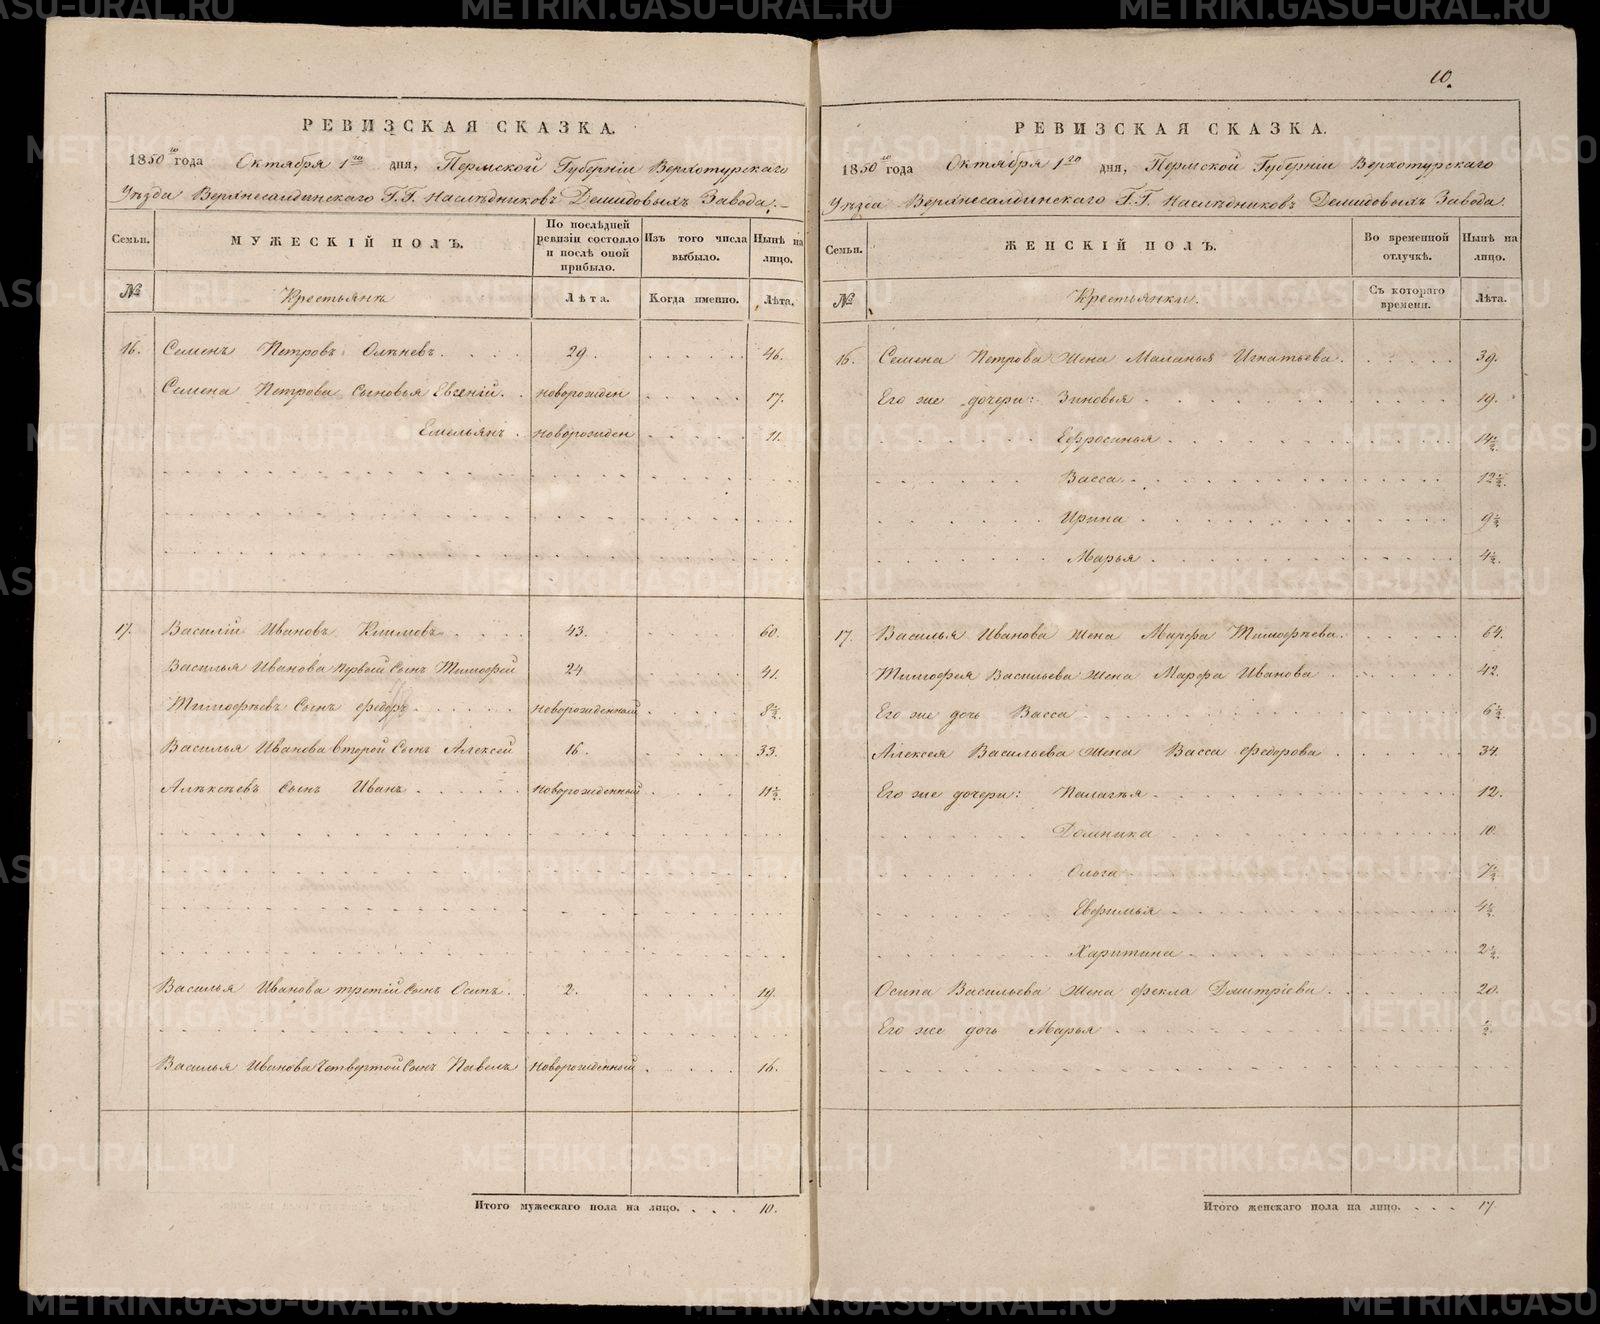 10.
РЕВИЗСКАЯ СКАЗКА.
1850го года Октября 1го дня, Пермской Губернiи Верхотурскаго
Уѣзда Верхнесалдинскаго Г.Г. Наслѣдниковъ Демидовыхъ Завода.
Семьи. МУЖЕСКІЙ ПОЛЪ. По послѣдней ревизіи состояло и послѣ оной прибыло. Изъ того числа выбыло. Нынѣ на лицо.
№ Крестьянъ Лѣта. Когда именно. Лѣта.
16. Семенъ Петровъ Олѣневъ. 29. 46.
Семена Петрова Сыновья Евгеній. новорожден 17.
Емельянъ. новорожден 11.
17. Василій Ивановъ Климовъ 43. 60.
Василья Иванова первый Сынъ Тимофей 24 41.
Тимофѣевъ Сынъ Федоръ. новорожденный 8½.
Василья Иванова второй Сынъ Алексей 16. 33.
Алѣксѣевъ Сынъ Иванъ новорожденный 11½.
Василья Иванова третій Сынъ Осипъ. 2. 19.
Василья Иванова Четвертой Сынъ Павелъ новорожденный 16.
Итого мужескаго пола на лицо. 10.
РЕВИЗСКАЯ СКАЗКА.
1850го года Октября 1го дня, Пермской Губерніи Верхотурскаго
Уѣзда Верхнесалдинскаго Г.Г. Наслѣдниковъ Демидовыхъ Завода.
Семьи. ЖЕНСКІЙ ПОЛЪ. Во временной отлучкѣ. Нынѣ на лицо.
№ Крестьянки. Съ котораго времени. Лѣта.
16. Семена Петрова Жена Маланья Игнатьева. 39.
Его же дочери: Зиновья 19.
Ефросинья 14½.
Васса 12½.
Ирина 9½
Марья 4½.
17. Василья Иванова жена Марфа Тимофѣева. 64.
Тимофея Васильева жена Марфа Иванова 42.
Его же дочь Васса 6½
Алексея Васильева жена Васса Федорова 34.
Его же дочери: Палагѣя 12.
Домника 10.
Ольга 7½
Евфимья 4½.
Харитина 2½.
Осипа Васильева Жена Фекла Дмитріева. 20.
Его же дочь Марья ½.
Итого женскаго пола на лицо. 17
METRIKI.GASO-URAL.RU